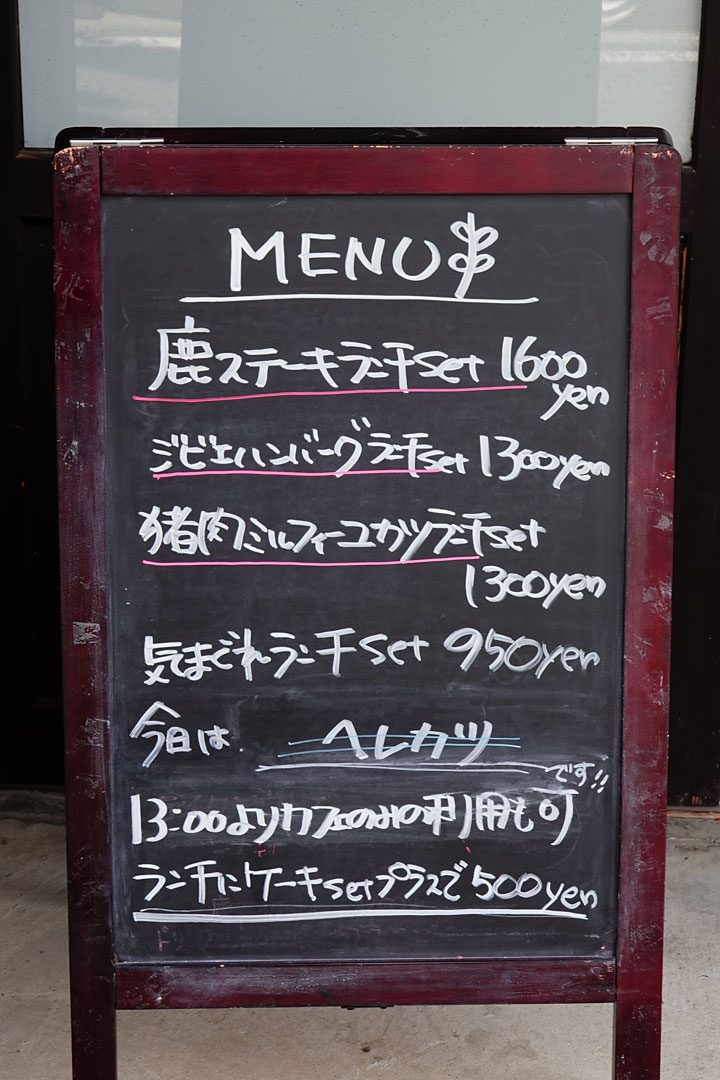 MENU
鹿ステーキランチset 1600
yen
ジビエハンバーグランチset 1300yen
猪肉ミルフィーユカツランチset
1300yen
気まぐれランチset 950yen
今日は ヘレカツ
です!!
13:00よりカフェのみの利用も可
ランチにケーキsetプラスで500yen